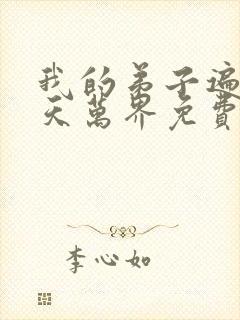 我的弟子遍
天萬界免費
李心如